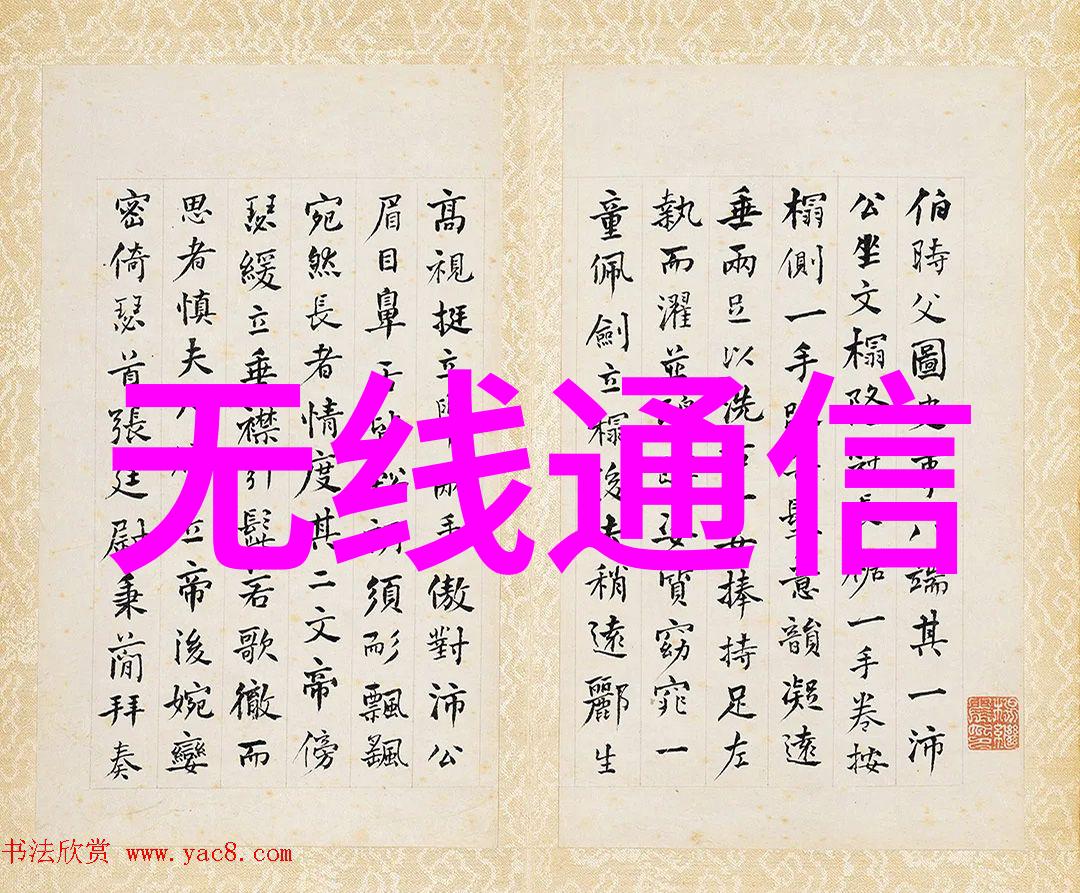 伯時父圖史事八端其一沛
公坐文榻隆冠長裾一手卷按
榻側一手意韻凝遠
垂兩足以洗右一女捧持足左
執而濯並女質窈窕一
童佩劍立榻後去稍遠酈生
高視挺立手傲對沛公
眉目鼻須飄飄
宛然長者情度其二文帝傍
瑟緩立垂襟引髭若歌徹而
思者慎夫人立帝後婉孌
密倚瑟首張廷尉秉簡拜奏
无线通信
书法欣赏 www.yac8.com